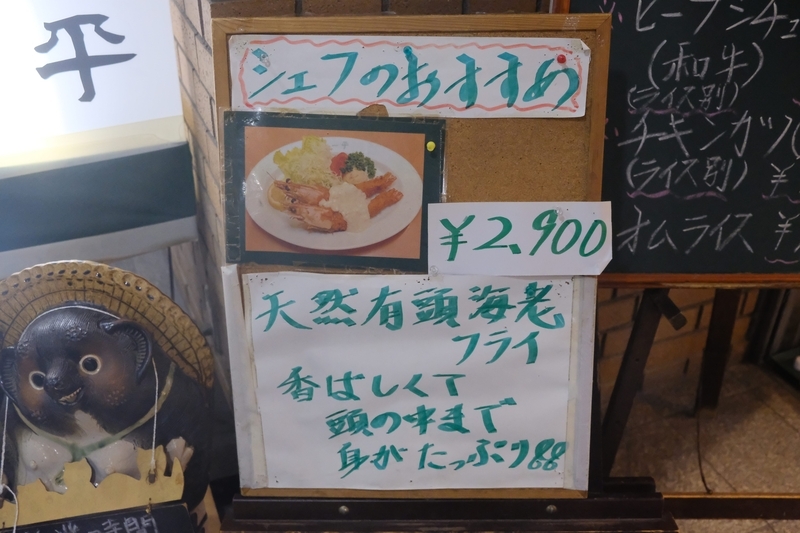 平
シェフのおすすめ
¥2,900
天然有頭海老
フライ
香ばしくて
頭の中まで
身がたっぷり
ビーフシチュ
(和牛)
(ライス別)
チキンカツ
(ライス別) ¥
オムライス ¥